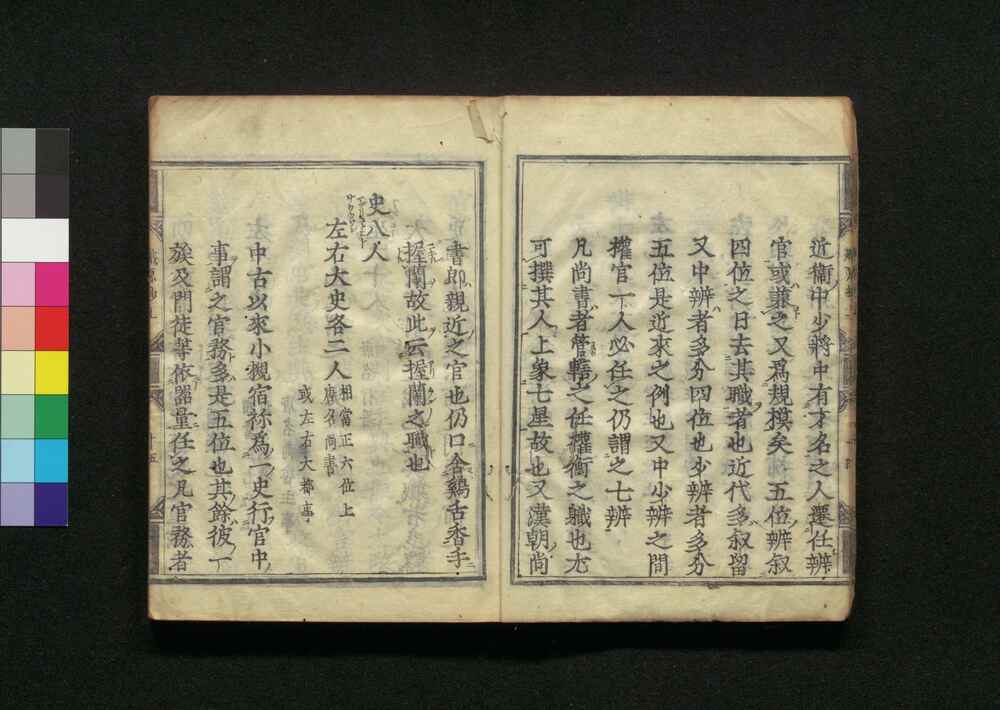 近衞中少將中有才名之人遷任辨
官或兼之又爲規摸矣五位辨叙
四位之日去其職者也近代多叙留
又中辨者多分四位也少辨者多分
五位是近來之例也又中少辨之間
權官一人必任之仍謂之七辨
凡尚書者管轄之任權衡之職也尤
可撰其人上象七星故也又漢朝尚
書郎親近之官也仍口含鷄舌香手
握蘭故此云握蘭之職也
史八人
左右大史各二人
相當正六位上
唐名尚書
或左右大都事
中古以來小槻宿祢爲一史行官中
事謂之官務多是五位也其餘彼一
族及門徒等依器量任之凡官務者